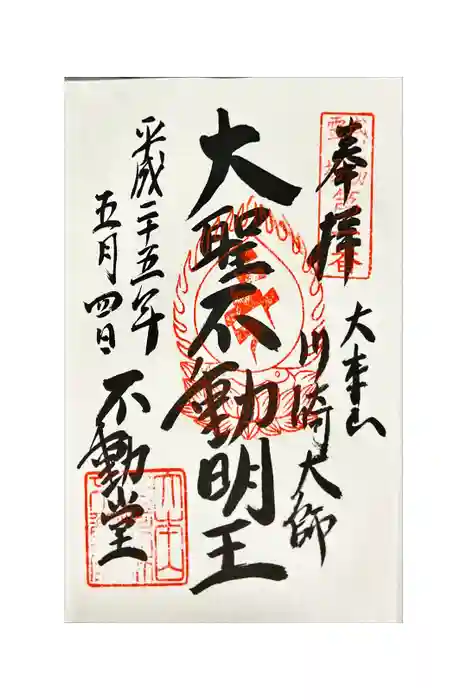 奉拝
大本山
川崎大師
大聖不動明王
平成二十五年
五月四日
不動堂